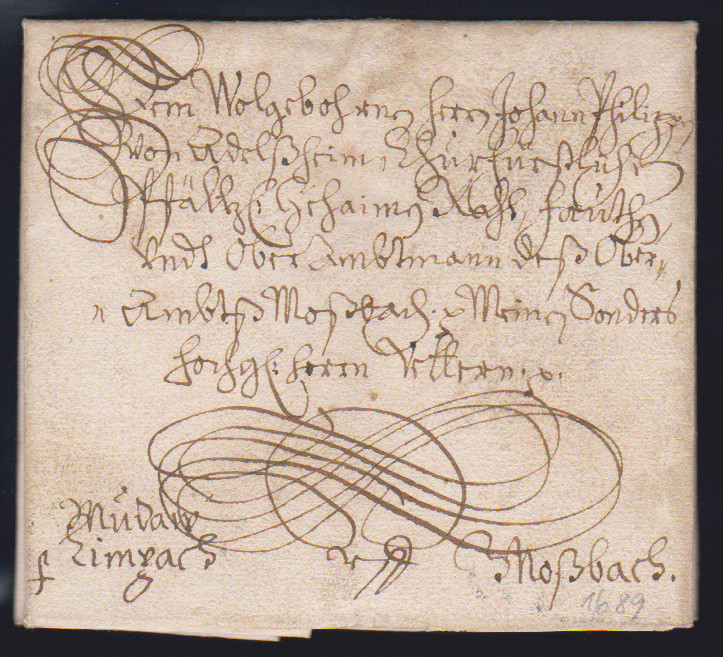 Dem Wolgebohrnen Herrn Johann Philipp
von Adelßheim, Churfürstlichen
Pfältz: Gehaimen Rath, Fauthen,
vndt Ober Ambtmann deß Ober-,
Ambtß Moßbach. Meinem Sonders
hochgl: Herrn Vettern.
Mudaw
Limpach
vff Moßbach.
1689